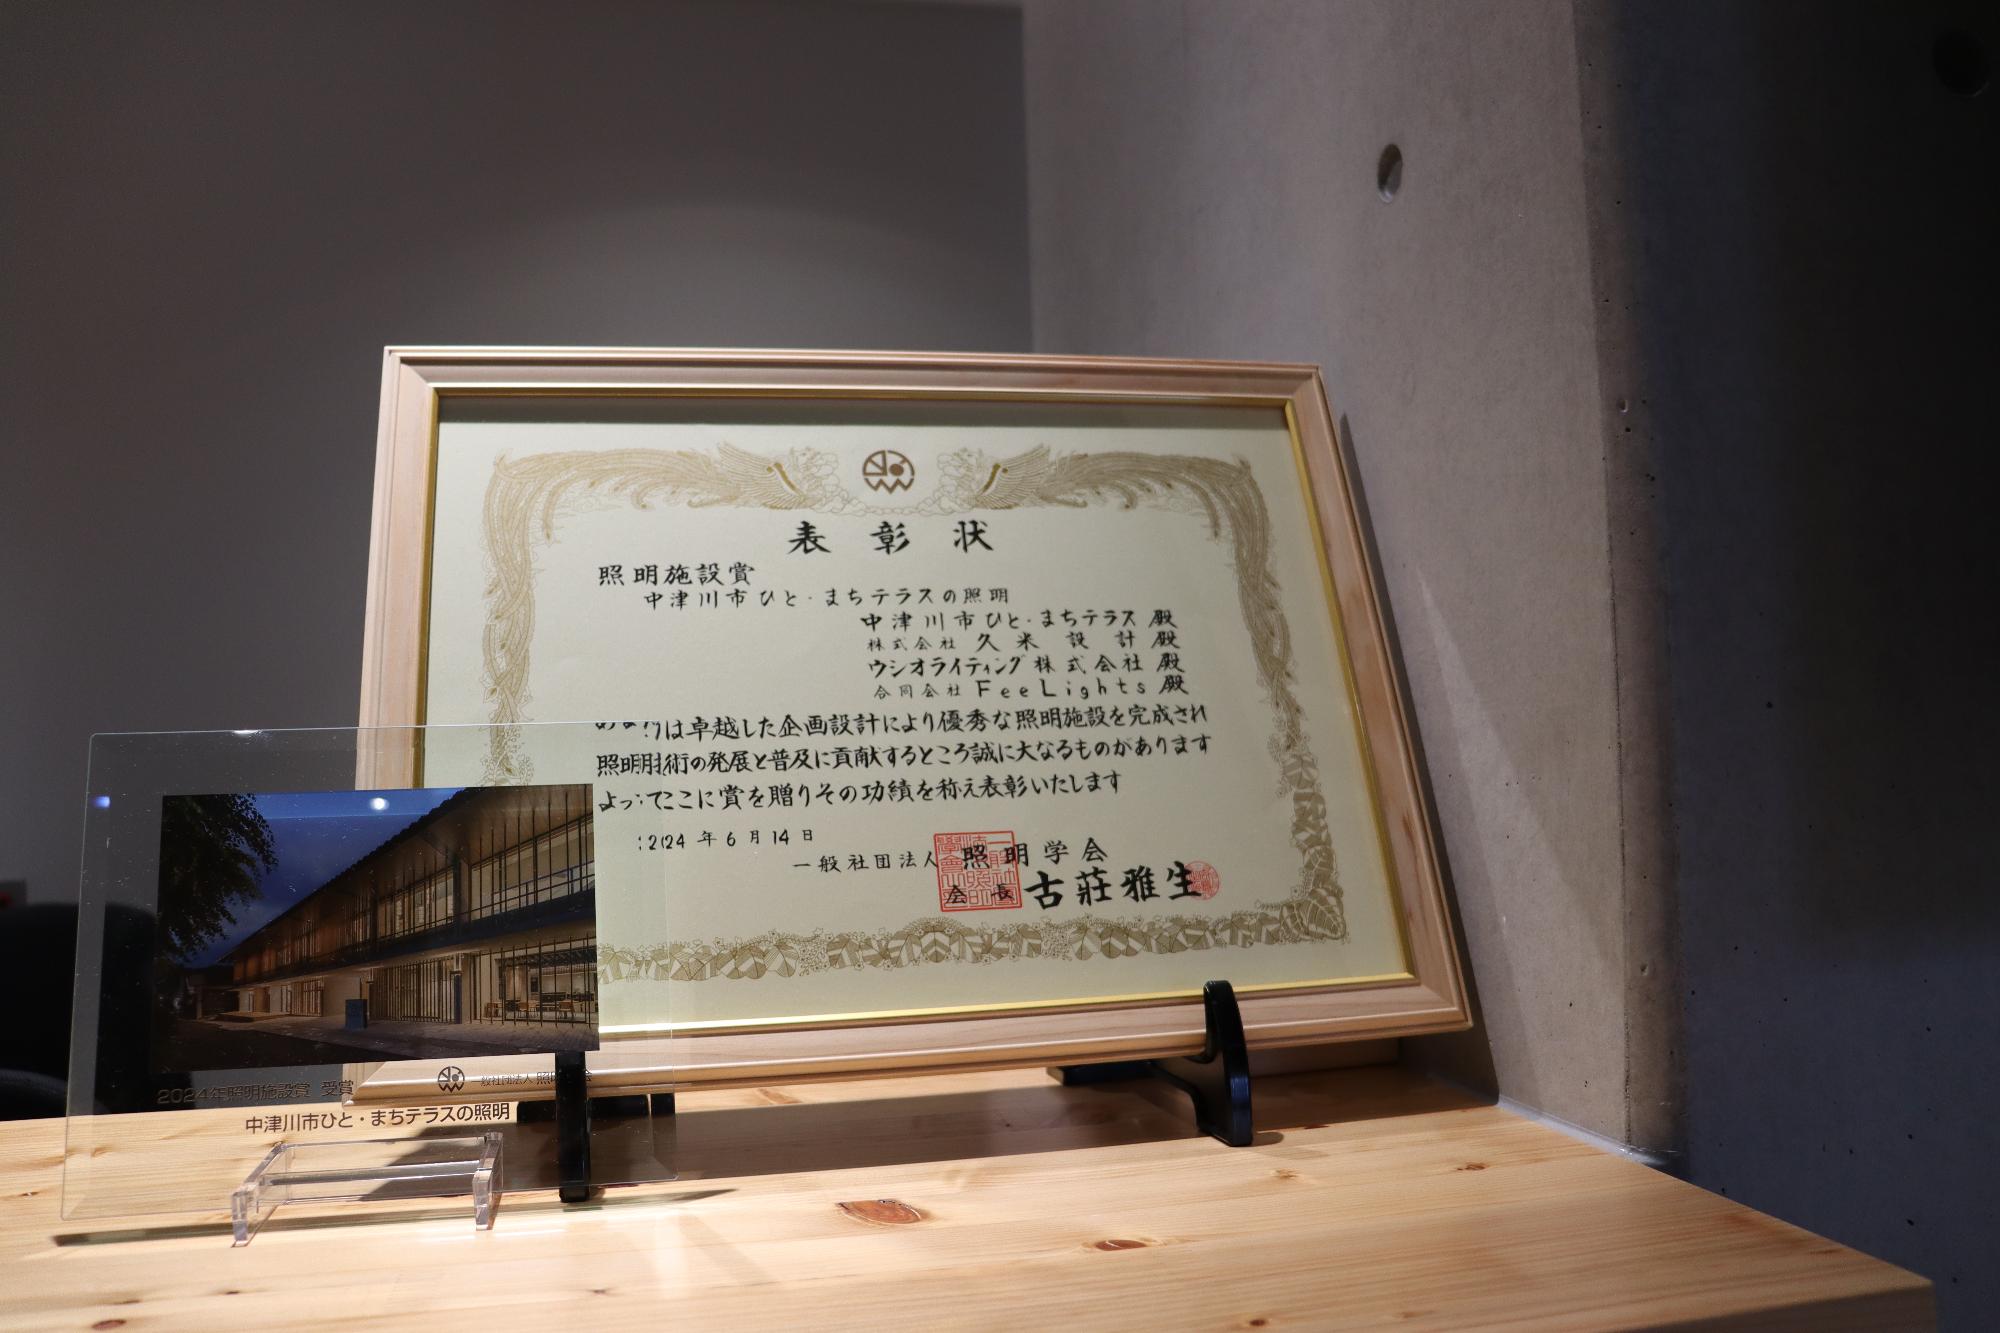 表彰状
照明施設賞
中津川市ひと・まちテラスの照明
中津川市ひと・まちテラス 殿
株式会社 久米設計 殿
ウシオライティング株式会社 殿
合同会社 FeeLights 殿
は卓越した企画設計により優秀な照明施設を完成され
照明技術の発展と普及に貢献するところ誠に大なるものがあります
よってここに賞を贈りその功績を称え表彰いたします
2024年6月14日
一般社団法人 照明学会
会長 古荘雅生
2024年照明施設賞 受賞
一般社団法人 照明学会
中津川市ひと・まちテラスの照明